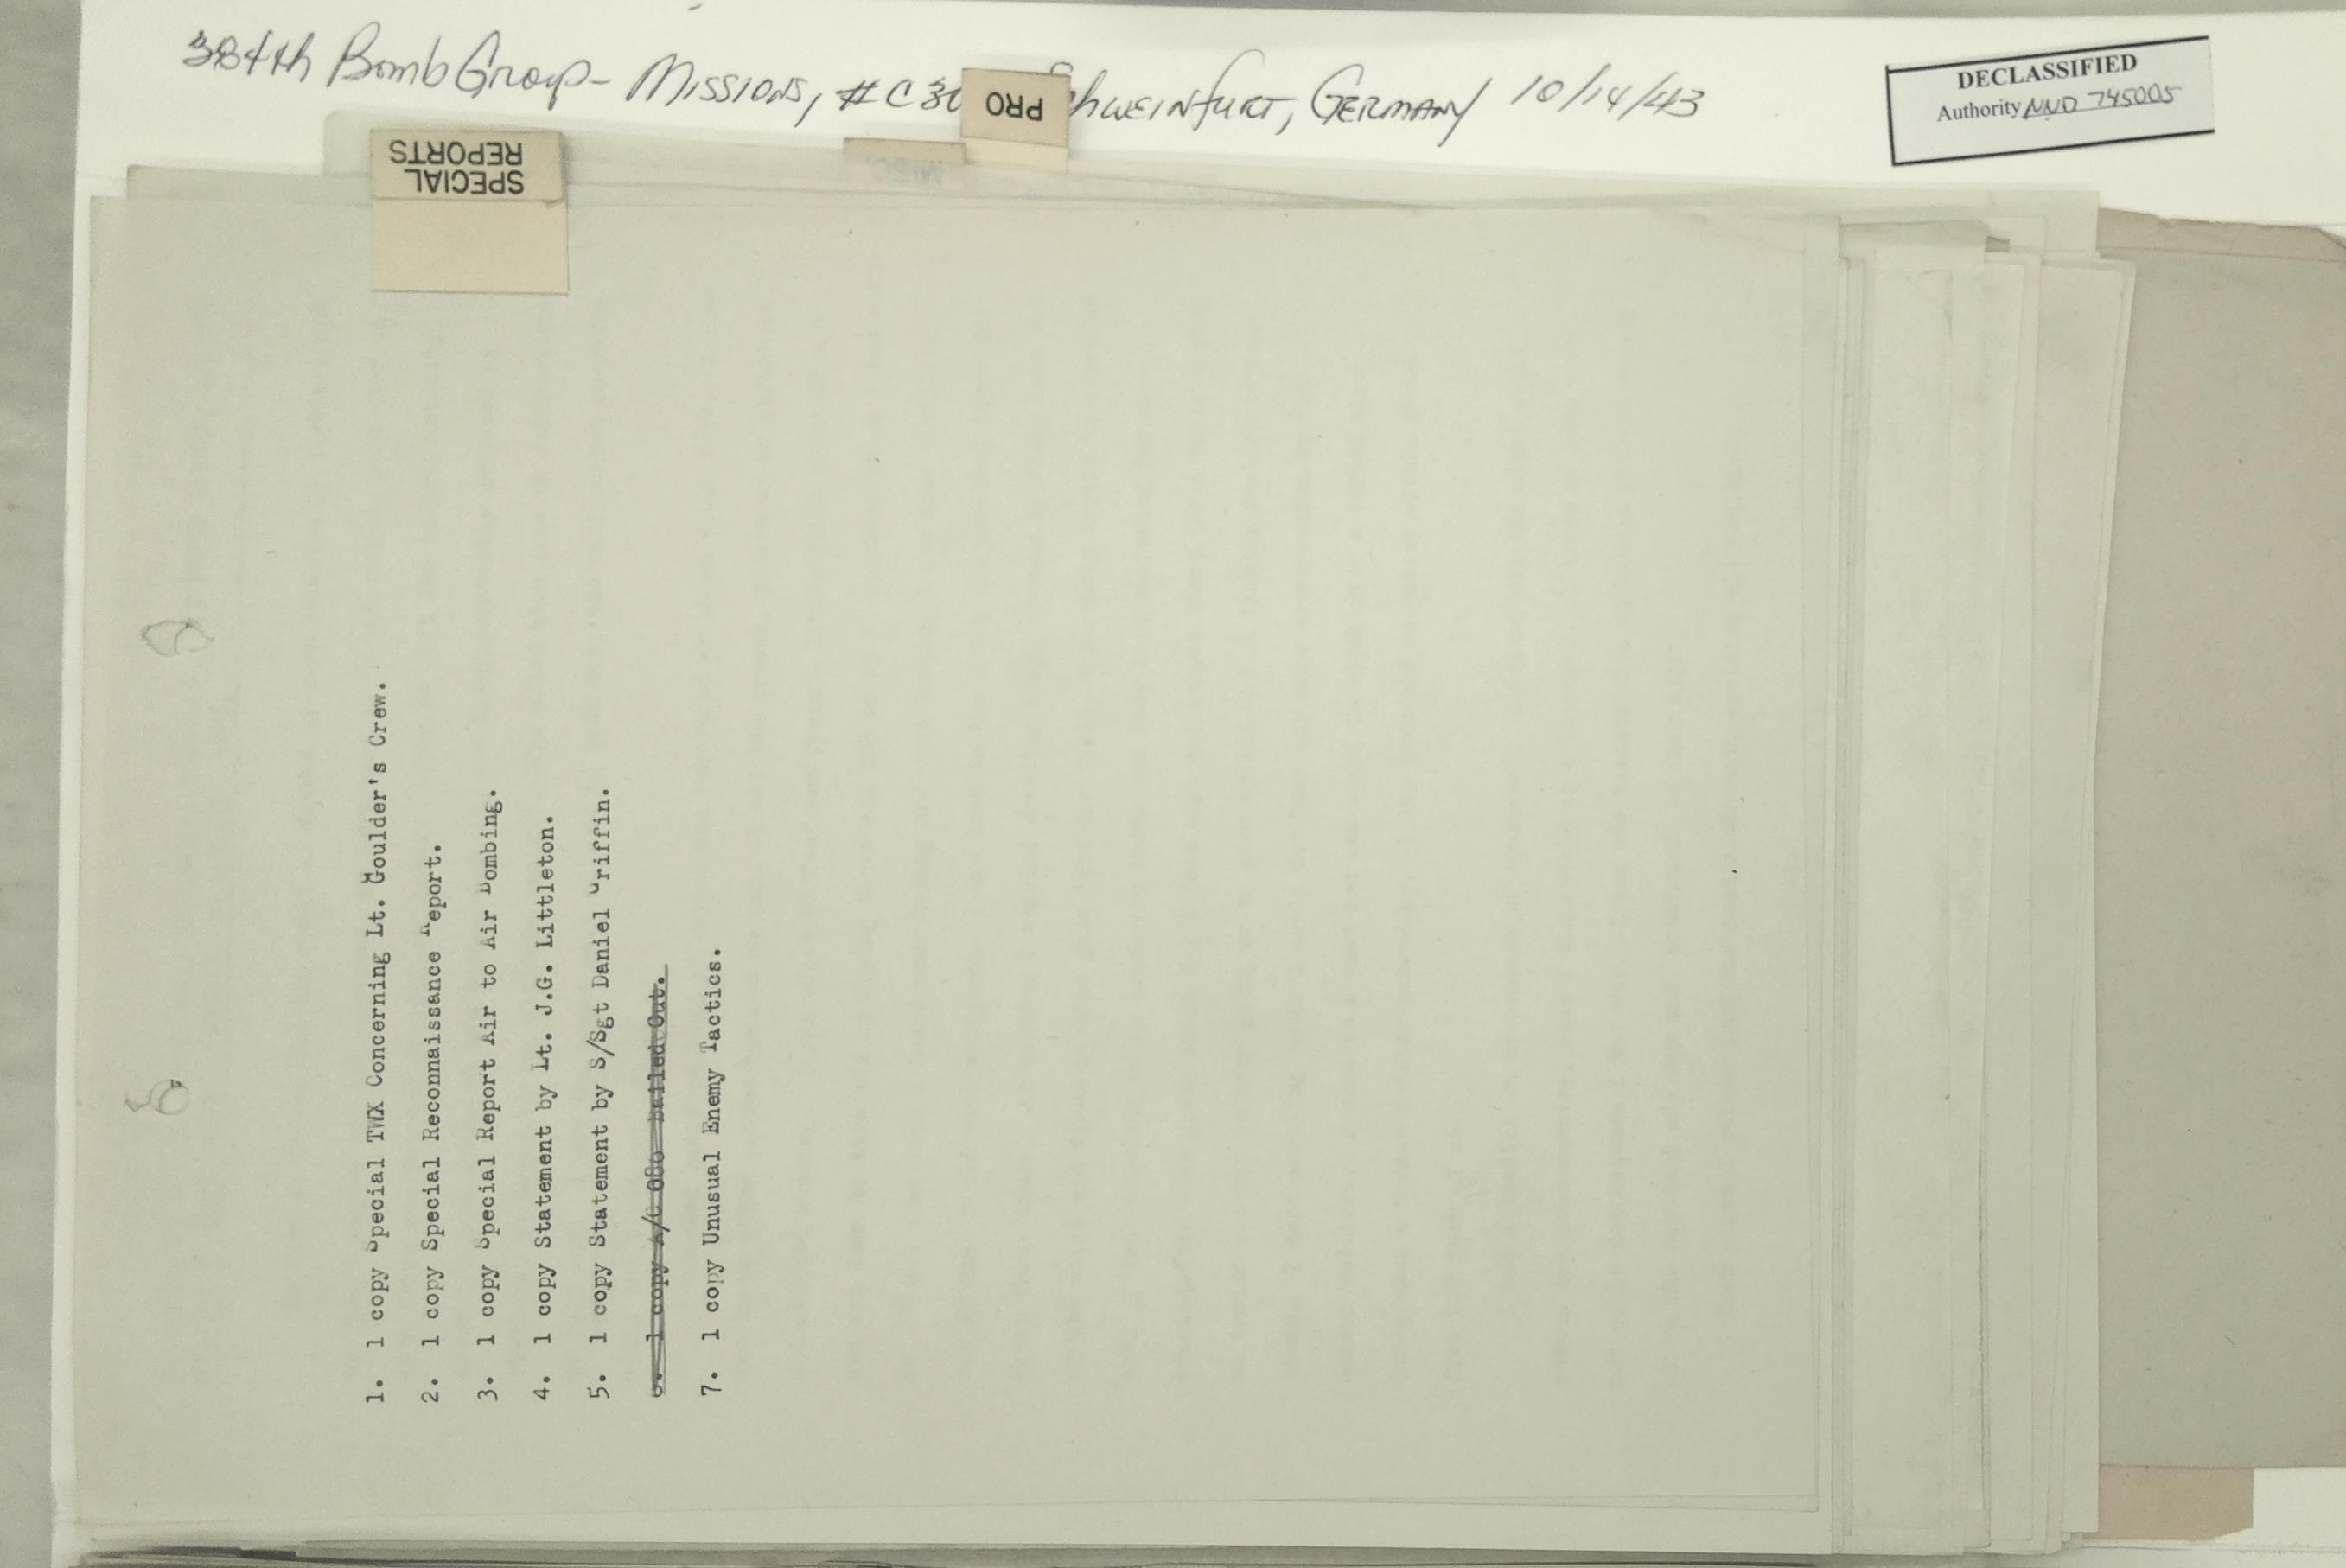 384th Bomb Group - Missions, #C30 Schweinfurt, Germany 10/14/43
DECLASSIFIED
Authority NND 745005
PRO
SPECIAL
REPORTS
MISC.
1. 1 copy Special TWX Concerning Lt. Goulder's Crew.
2. 1 copy Special Reconnaissance Report.
3. 1 copy Special Report Air to Air Bombing.
4. 1 copy Statement by Lt. J.G. Littleton.
5. 1 copy Statement by S/Sgt Daniel Griffin.
6. 1 copy A/C 086 bailed Out.
7. 1 copy Unusual Enemy Tactics.